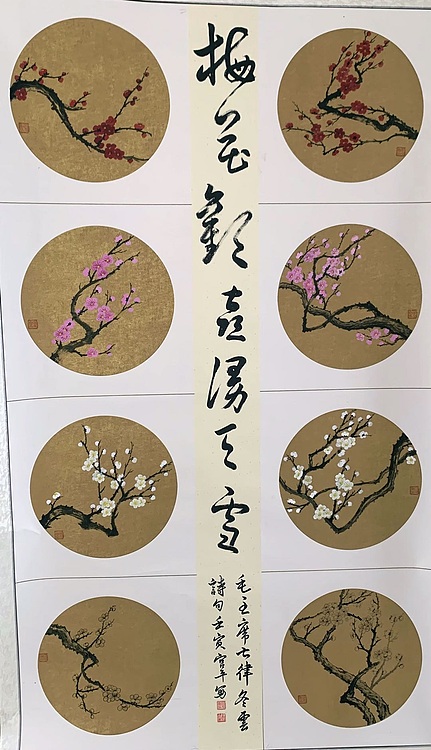 梅花歡喜漫天雪
毛主席七律冬雲
詩句壬寅宫平写